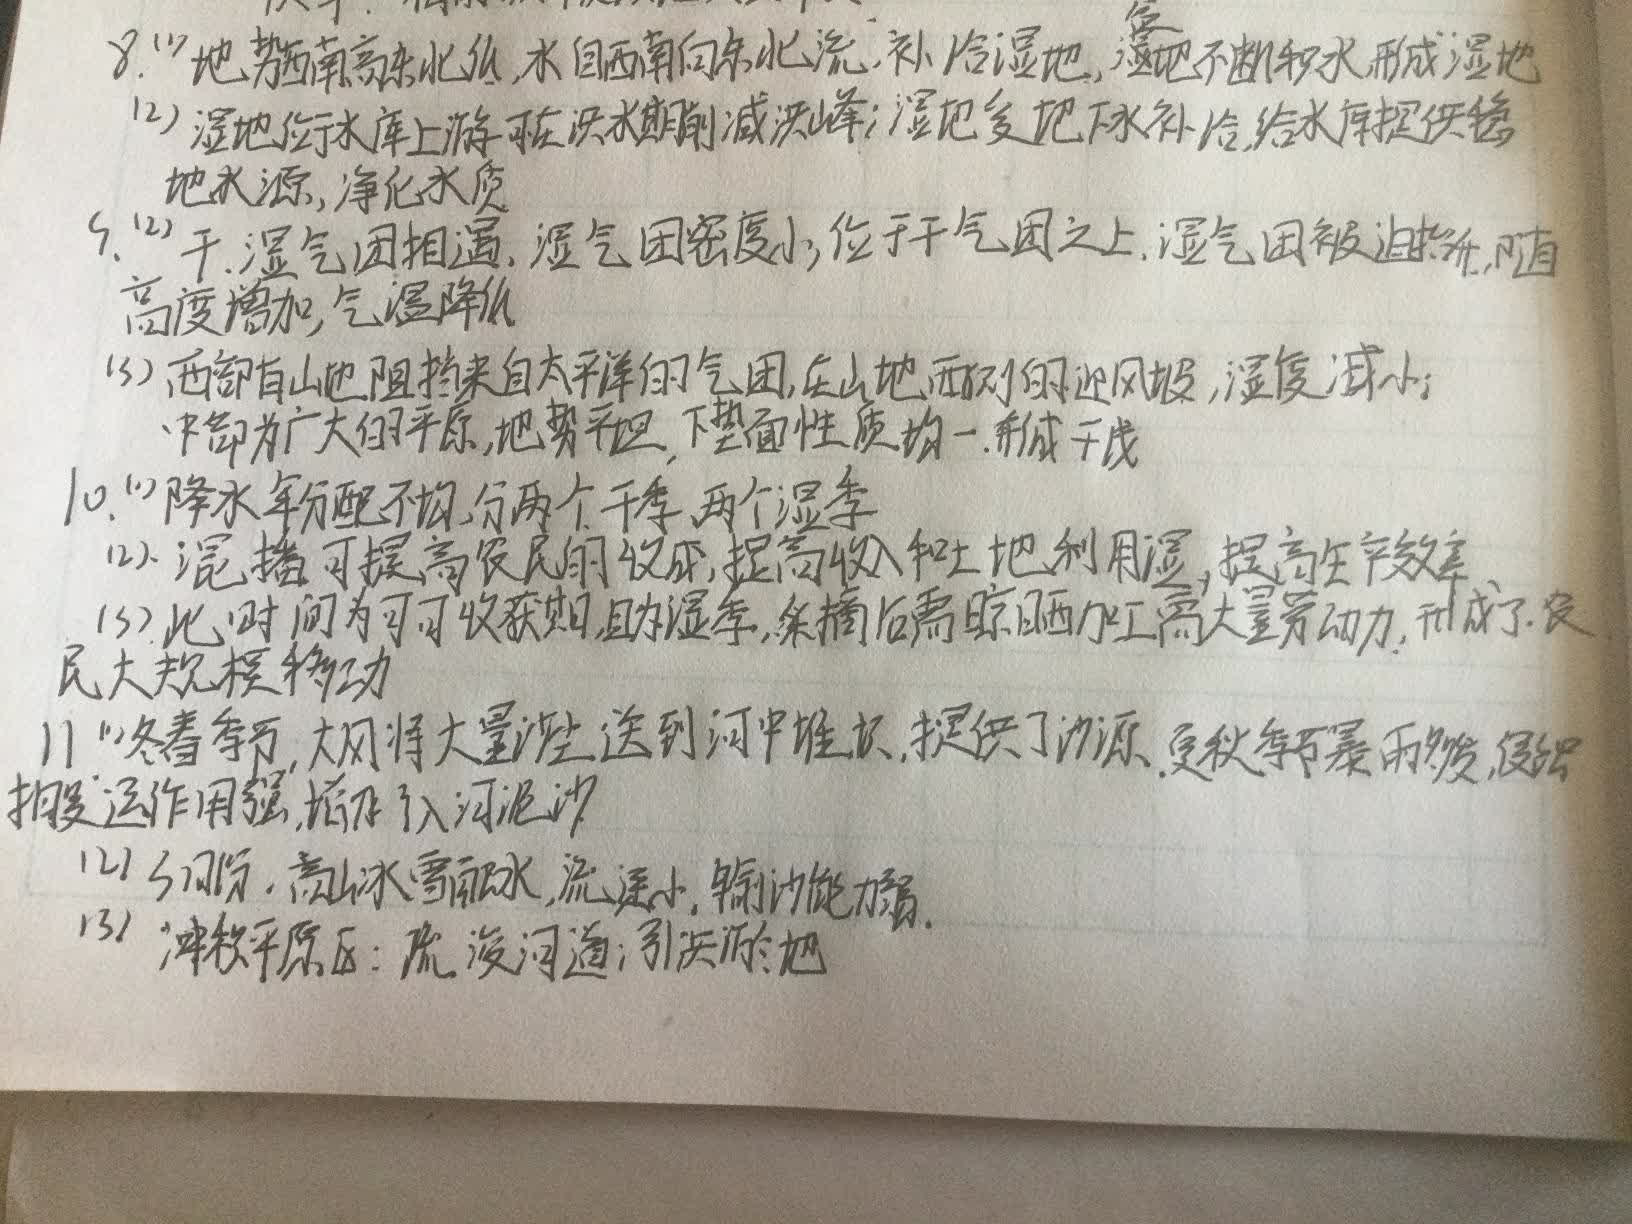 8.(1)地势西南高东北低,水自西南向东北流,补给湿地,湿地不断积水,形成湿地
(2)湿地位于水库上游可在洪水期削减洪峰;湿地多地下水补给,给水库提供稳
地水源,净化水质
9.(2)干.湿气团相遇,湿气团密度小,位于干气团之上.湿气团被迫抬升,随
高度增加,气温降低
(3)西部有山地阻挡来自太平洋的气团,在山地西侧的迎风坡,湿度减小;
中部为广大的平原,地势平坦,下垫面性质均一.形成干线
10.(1)降水年分配不均,分两个干季,两个湿季
(2).混播可提高农民的收成,提高收入和土地利用湿,提高生产效率
(3).此时间为可可收获期,且为湿季,采摘后需晾晒加工需大量劳动力,形成了农
民大规模移动
11(1)冬春季节,大风将大量沙尘送到河中堆积,提供了沙源.夏秋季节暴雨多发,侵蚀
搬运作用强,增加了入河泥沙
(2)5月份.高山冰雪融水,流速小,输沙能力弱.
(3)冲积平原区:疏浚河道;引洪淤地